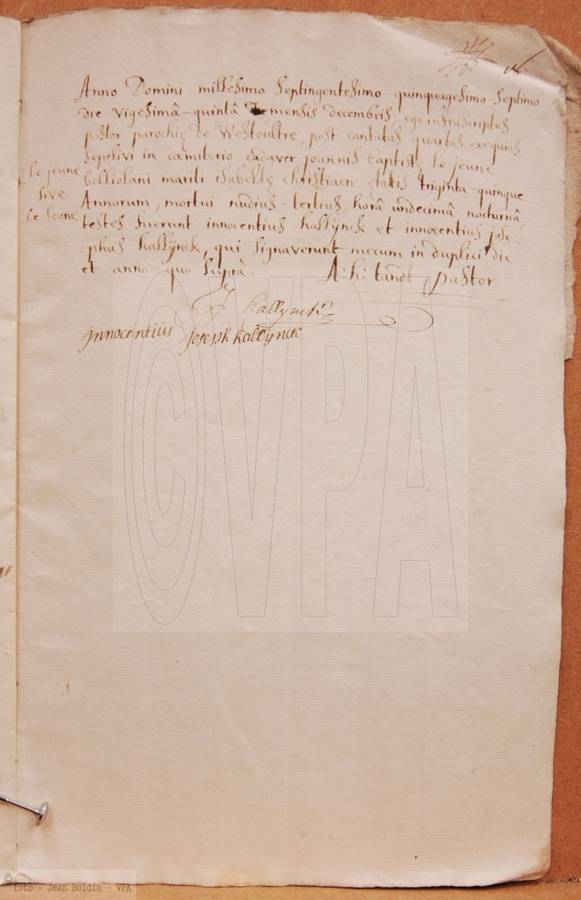 Anno Domini millesimo Septingentesimo quinquagesimo-Septimo
die vigesimâ-quintâ mensis decembris, ego infrascriptus
pastor parochiæ de Westoultre, post cantatas quartas exequias
sepelivi in cœmiterio cadaver joannis baptistæ le jeune
le jeune
sive
le Soone
belliolani mariti isabellæ Christiaen ætatis triginta-quinque
Annorum, mortui nudius-tertius horâ undecimâ nocturnâ
testes fuerunt innocentius kallynck et innocentius jose-
phus kallynck, qui signaverunt mecum in duplici die
et anno quo suprà. A: h: tandt, pastor
kallynck
innocentiüs joseph kallijnck
©VPA
© foto - Jean Boldin - VPA